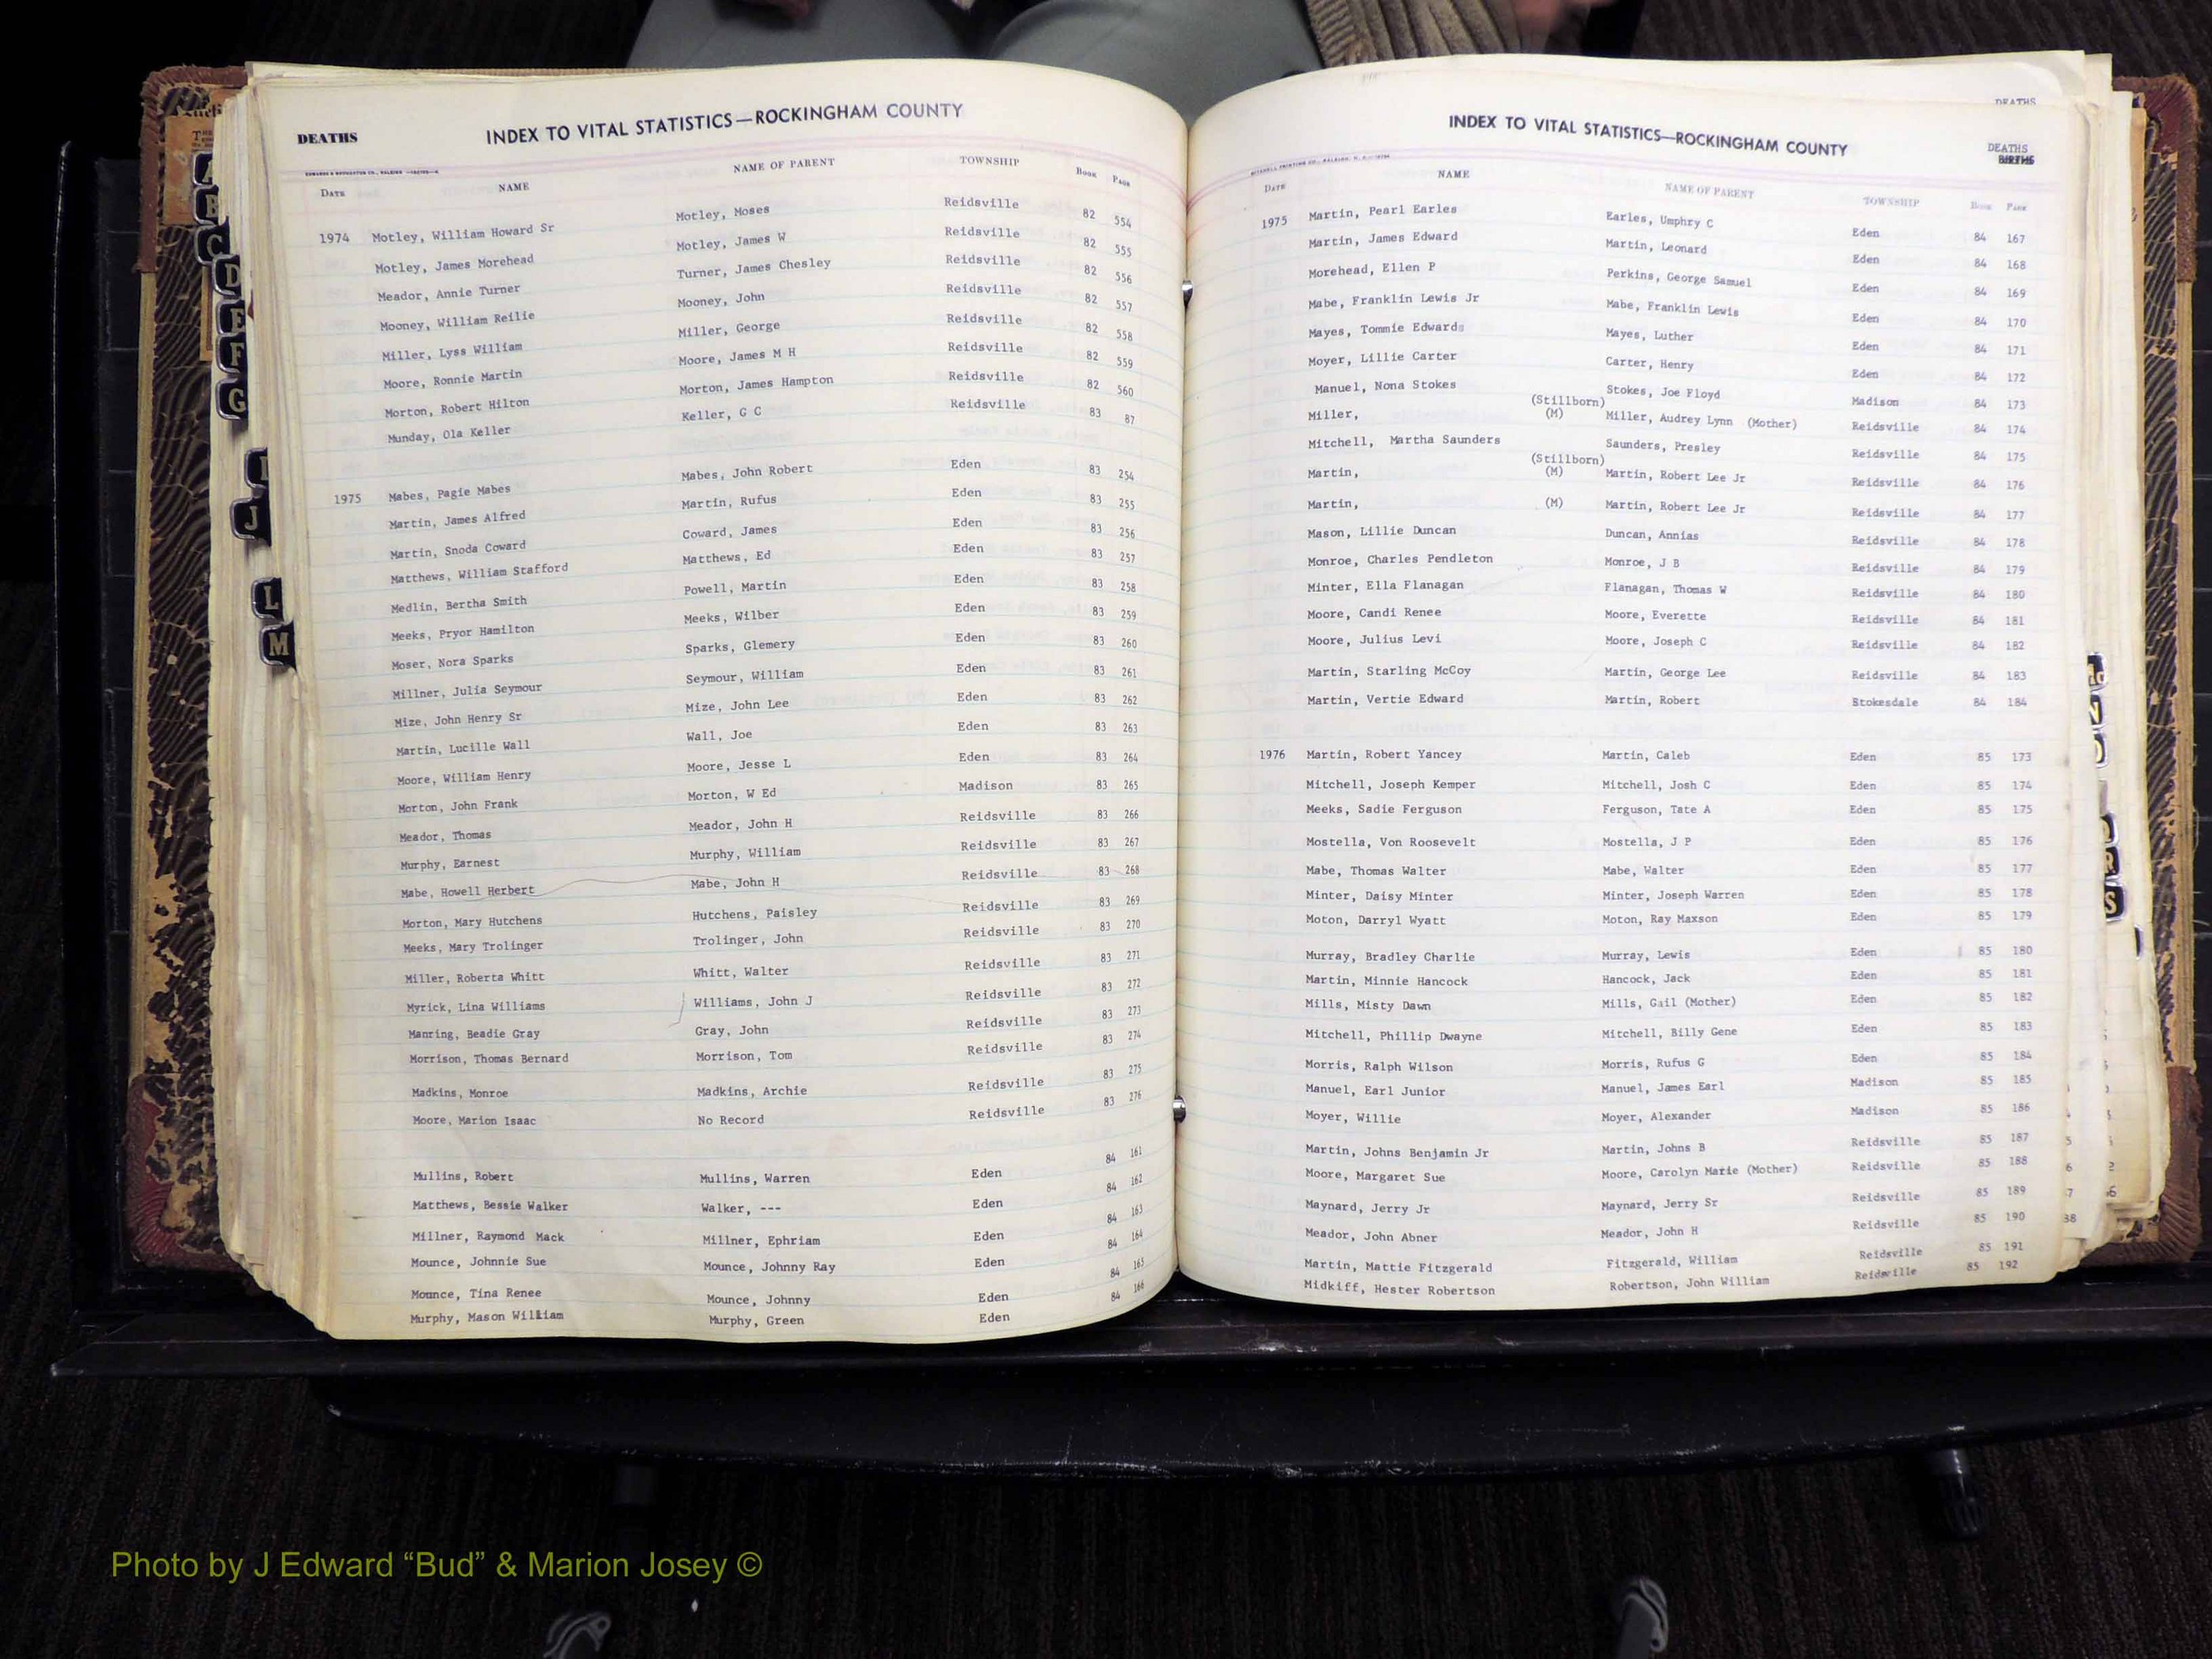 DEATHS
INDEX TO VITAL STATISTICS—ROCKINGHAM COUNTY
DATE NAME NAME OF PARENT TOWNSHIP BOOK PAGE
1974 Motley, William Howard Sr Motley, Moses Reidsville 82 554
Motley, James Morehead Motley, James W Reidsville 82 555
Meador, Annie Turner Turner, James Chesley Reidsville 82 556
Mooney, William Reilie Mooney, John Reidsville 82 557
Miller, Lyss William Miller, George Reidsville 82 558
Moore, Ronnie Martin Moore, James M H Reidsville 82 559
Morton, Robert Hilton Morton, James Hampton Reidsville 82 560
Munday, Ola Keller Keller, G C Reidsville 83 87
1975 Mabes, Pagie Mabes Mabes, John Robert Eden 83 254
Martin, James Alfred Martin, Rufus Eden 83 255
Martin, Snoda Coward Coward, James Eden 83 256
Matthews, William Stafford Matthews, Ed Eden 83 257
Medlin, Bertha Smith Powell, Martin Eden 83 258
Meeks, Pryor Hamilton Meeks, Wilber Eden 83 259
Moser, Nora Sparks Sparks, Glemery Eden 83 260
Millner, Julia Seymour Seymour, William Eden 83 261
Mize, John Henry Sr Mize, John Lee Eden 83 262
Martin, Lucille Wall Wall, Joe Eden 83 263
Moore, William Henry Moore, Jesse L Eden 83 264
Morton, John Frank Morton, W Ed Madison 83 265
Meador, Thomas Meador, John H Reidsville 83 266
Murphy, Earnest Murphy, William Reidsville 83 267
Mabe, Howell Herbert Mabe, John H Reidsville 83 268
Morton, Mary Hutchens Hutchens, Paisley Reidsville 83 269
Meeks, Mary Trolinger Trolinger, John Reidsville 83 270
Miller, Roberta Whitt Whitt, Walter Reidsville 83 271
Myrick, Lina Williams Williams, John J Reidsville 83 272
Manring, Beadie Gray Gray, John Reidsville 83 273
Morrison, Thomas Bernard Morrison, Tom Reidsville 83 274
Madkins, Monroe Madkins, Archie Reidsville 83 275
Moore, Marion Isaac No Record Reidsville 83 276
Mullins, Robert Mullins, Warren Eden 84 161
Matthews, Bessie Walker Walker, --- Eden 84 162
Millner, Raymond Mack Millner, Ephriam Eden 84 163
Mounce, Johnnie Sue Mounce, Johnny Ray Eden 84 164
Mounce, Tina Renee Mounce, Johnny Eden 84 165
Murphy, Mason William Murphy, Green Eden 84 166
DEATHS
INDEX TO VITAL STATISTICS—ROCKINGHAM COUNTY
DEATHS
BIRTHS
DATE NAME NAME OF PARENT TOWNSHIP BOOK PAGE
1975 Martin, Pearl Earles Earles, Umphry C Eden 84 167
Martin, James Edward Martin, Leonard Eden 84 168
Morehead, Ellen P Perkins, George Samuel Eden 84 169
Mabe, Franklin Lewis Jr Mabe, Franklin Lewis Eden 84 170
Mayes, Tommie Edwards Mayes, Luther Eden 84 171
Moyer, Lillie Carter Carter, Henry Eden 84 172
Manuel, Nona Stokes Stokes, Joe Floyd Madison 84 173
(Stillborn)
Miller, (M) Miller, Audrey Lynn (Mother) Reidsville 84 174
Mitchell, Martha Saunders Saunders, Presley Reidsville 84 175
(Stillborn)
Martin, (M) Martin, Robert Lee Jr Reidsville 84 176
Martin, (M) Martin, Robert Lee Jr Reidsville 84 177
Mason, Lillie Duncan Duncan, Annias Reidsville 84 178
Monroe, Charles Pendleton Monroe, J B Reidsville 84 179
Minter, Ella Flanagan Flanagan, Thomas W Reidsville 84 180
Moore, Candi Renee Moore, Everette Reidsville 84 181
Moore, Julius Levi Moore, Joseph C Reidsville 84 182
Martin, Starling McCoy Martin, George Lee Reidsville 84 183
Martin, Vertie Edward Martin, Robert Stokesdale 84 184
1976 Martin, Robert Yancey Martin, Caleb Eden 85 173
Mitchell, Joseph Kemper Mitchell, Josh C Eden 85 174
Meeks, Sadie Ferguson Ferguson, Tate A Eden 85 175
Mostella, Von Roosevelt Mostella, J P Eden 85 176
Mabe, Thomas Walter Mabe, Walter Eden 85 177
Minter, Daisy Minter Minter, Joseph Warren Eden 85 178
Moton, Darryl Wyatt Moton, Ray Maxson Eden 85 179
Murray, Bradley Charlie Murray, Lewis Eden 85 180
Martin, Minnie Hancock Hancock, Jack Eden 85 181
Mills, Misty Dawn Mills, Gail (Mother) Eden 85 182
Mitchell, Phillip Dwayne Mitchell, Billy Gene Eden 85 183
Morris, Ralph Wilson Morris, Rufus G Eden 85 184
Manuel, Earl Junior Manuel, James Earl Madison 85 185
Moyer, Willie Moyer, Alexander Madison 85 186
Martin, Johns Benjamin Jr Martin, Johns B Reidsville 85 187
Moore, Margaret Sue Moore, Carolyn Marie (Mother) Reidsville 85 188
Maynard, Jerry Jr Maynard, Jerry Sr Reidsville 85 189
Meador, John Abner Meador, John H Reidsville 85 190
Martin, Mattie Fitzgerald Fitzgerald, William Reidsville 85 191
Midkiff, Hester Robertson Robertson, John William Reidsville 85 192
A
B
C
D
E
F
G
I
J
L
M
N
O
Q
R
S
Photo by J Edward “Bud” & Marion Josey ©